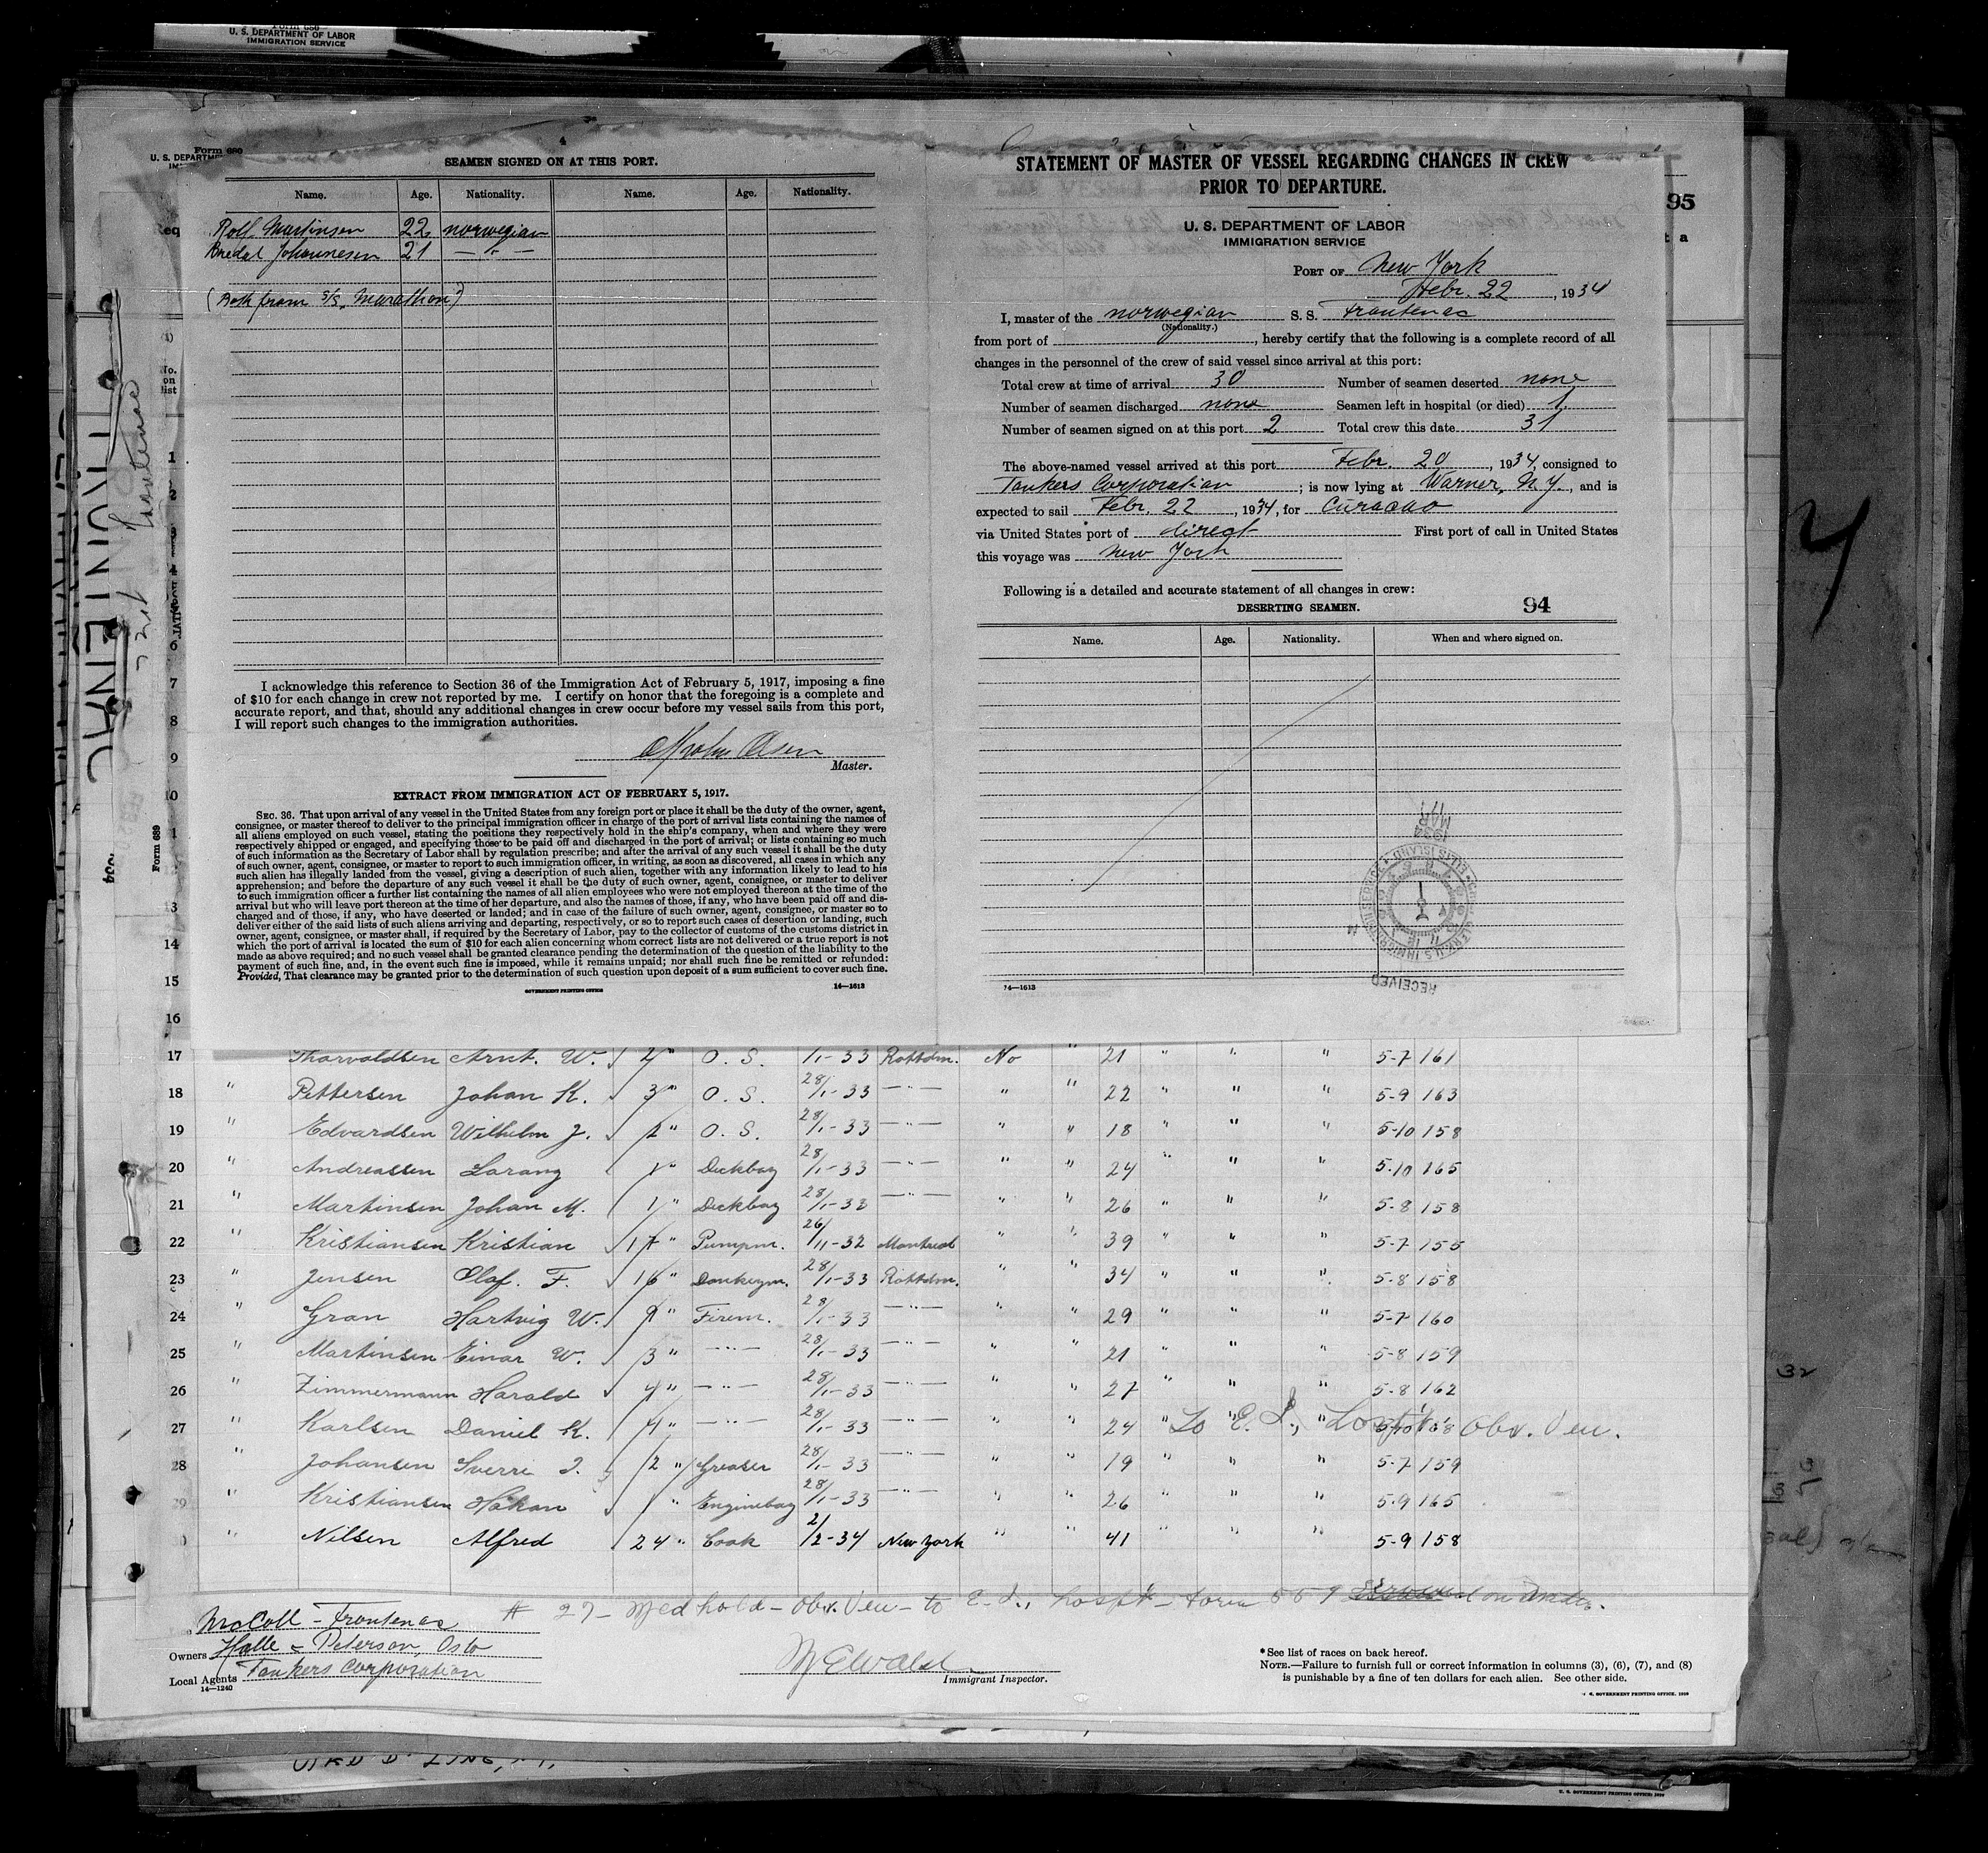 Form 686
U. S. DEPARTMENT OF LABOR
IMMIGRATION SERVICE
Form 680
U. S. DEPARTM
SEAMEN SIGNED ON AT THIS PORT.
Name. Age. Nationality. Name. Age. Nationality.
Rolf Martinsen 22 norwegian
Johannesen 21 — " —
(Both from S/S. Marathon)
I acknowledge this reference to Section 36 of the Immigration Act of February 5, 1917, imposing a fine
of $10 for each change in crew not reported by me. I certify on honor that the foregoing is a complete and
accurate report, and that, should any additional changes in crew occur before my vessel sails from this port,
I will report such changes to the immigration authorities.
Olsen
Master.
EXTRACT FROM IMMIGRATION ACT OF FEBRUARY 5, 1917.
SEC. 36. That upon arrival of any vessel in the United States from any foreign port or place it shall be the duty of the owner, agent,
consignee, or master thereof to deliver to the principal immigration officer in charge of the port of arrival lists containing the names of
all aliens employed on such vessel, stating the positions they respectively hold in the ship's company, when and where they were
respectively shipped or engaged, and specifying those to be paid off and discharged in the port of arrival; or lists containing so much
of such information as the Secretary of Labor shall by regulation prescribe; and after the arrival of any such vessel it shall be the duty
of such owner, agent, consignee, or master to report to such immigration officer, in writing, as soon as discovered, all cases in which any
such alien has illegally landed from the vessel, giving a description of such alien, together with any information likely to lead to his
apprehension; and before the departure of any such vessel it shall be the duty of such owner, agent, consignee, or master to deliver
to such immigration officer a further list containing the names of all alien employees who were not employed thereon at the time of the
arrival but who will leave port thereon at the time of her departure, and also the names of those, if any, who have been paid off and dis-
charged and of those, if any, who have deserted or landed; and in case of the failure of such owner, agent, consignee, or master so to
deliver either of the said lists of such aliens arriving and departing, respectively, or so to report such cases of desertion or landing, such
owner, agent, consignee, or master shall, if required by the Secretary of Labor, pay to the collector of customs of the customs district in
which the port of arrival is located the sum of $10 for each alien concerning whom correct lists are not delivered or a true report is not
made as above required; and no such vessel shall be granted clearance pending the determination of the question of the liability to the
payment of such fine, and, in the event such fine is imposed, while it remains unpaid; nor shall such fine be remitted or refunded:
Provided, That clearance may be granted prior to the determination of such question upon deposit of a sum sufficient to cover such fine.
GOVERNMENT PRINTING OFFICE 14—1613
STATEMENT OF MASTER OF VESSEL REGARDING CHANGES IN CREW
PRIOR TO DEPARTURE.
U. S. DEPARTMENT OF LABOR
IMMIGRATION SERVICE
PORT OF New York
Febr. 22, 1934
I, master of the norwegian S. S. Frontenac
(Nationality.)
from port of , hereby certify that the following is a complete record of all
changes in the personnel of the crew of said vessel since arrival at this port:
Total crew at time of arrival 30 Number of seamen deserted none
Number of seamen discharged none Seamen left in hospital (or died) 1
Number of seamen signed on at this port 2 Total crew this date 31
The above-named vessel arrived at this port Febr. 20, 1934, consigned to
Tankers Corporation; is now lying at Warner, N.Y., and is
expected to sail Febr. 22, 1934, for Curacao
via United States port of direct First port of call in United States
this voyage was New York
Following is a detailed and accurate statement of all changes in crew:
DESERTING SEAMEN. 94
Name. Age. Nationality. When and where signed on.
RECEIVED
MAR
1934
14—1613
95
t a
Req
No.
on
list
1
2
3
4
5
6
7
8
9
10
11
12
13
14
15
16
Form 689
FRONTENAC
Frontenac
17 Thorvaldsen Arnt. W. 2" O. S. /1-33 Rottdm. No " 21 " " " 5-7 161
18 " Pettersen Johan K. 3" O. S. 28/1-33 —"— " " 22 " " " 5-9 163
19 " Edvardsen Wilhelm J. 2" O. S. 28/1-33 —"— " " 18 " " " 5-10 158
20 " Andreassen Lorang 1" Deckboy 28/1-33 —"— " " 24 " " " 5-10 165
21 " Martinsen Johan M. 1" Deckboy 28/1-33 —"— " " 26 " " " 5-8 158
22 " Kristiansen Kristian 17" Pumpm. 26/11-32 Montreal " " 39 " " " 5-7 155
23 " Jensen Olaf. F. 16" Donkeym. 28/1-33 Rottdm. " " 34 " " " 5-8 158
24 " Gran Hartvig W. 9" Firem. 28/1-33 —"— " " 29 " " " 5-7 160
25 " Martinsen Einar W. 3" —"— 28/1-33 —"— " " 21 " " " 5-8 159
26 " Zimmermann Harald 4" —"— 28/1-33 —"— " " 27 " " " 5-8 162
27 " Karlsen Daniel K. 4" —"— 28/1-33 —"— " " 24 " To E. I., Hospt. Obs. Ven.
28 " Johansen Sverre J. 2" Greaser 28/1-33 —"— " " 19 " " " 5-7 159
29 " Kristiansen Håkon 1" Engineboy 28/1-33 —"— " " 26 " " " 5-9 165
30 " Nilsen Alfred 24" Cook 2/2-34 New York " " 41 " " " 5-9 158
# 27 - Med hold - Obs. Ven - to E. I., Hospt - form 559 Served on
McColl - Frontenac
Owners Halle & Peterson, Oslo
Local Agents Tankers Corporation
14—1240
Immigrant Inspector.
* See list of races on back hereof.
NOTE.—Failure to furnish full or correct information in columns (3), (6), (7), and (8)
is punishable by a fine of ten dollars for each alien. See other side.
U. S. GOVERNMENT PRINTING OFFICE
32